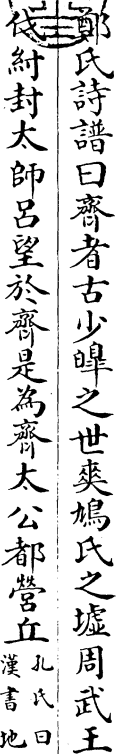 鄭氏詩譜曰齊者古少皥之世爽鳩氏之墟周武王
伐紂封太師呂望於齊是為齊太公都營丘
孔氏曰
漢書地